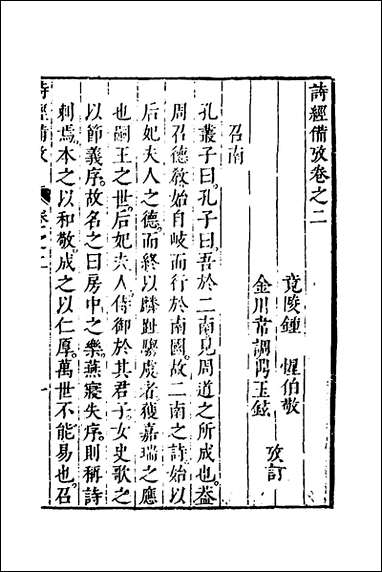 詩經備攷卷之二
竟陵鍾 惺伯敬
金川韋調鼎玉鉉
攷訂
召南
孔叢子曰孔子曰吾於二南見周道之所成也葢
周召德敎始自岐而行於南國故二南之詩始以
后妃夫人之德而終以麟趾騶虞者獲嘉瑞之應
也嗣王之世后妃夫人侍御於其君子女史歌之
以節義序故名之曰房中之樂燕寢失序則稱詩
刺焉本之以和敬成之以仁厚萬世不能易也召
詩經備攷
卷之二
一